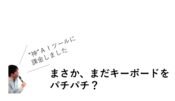 “神”AIツールに
課金しました
まさか、まだキーボードを
パチパチ？